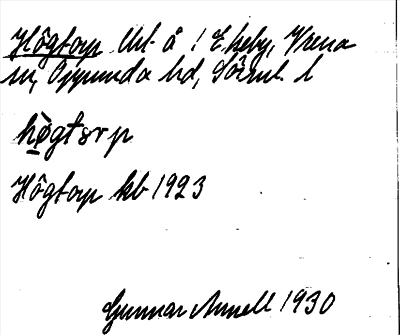 Högtorp Ubt å 1 Ekeby, Vrena
sn, Oppunda hd, Sörml. l
högtårp
Högtorp kb 1923
Gunnar Annell 1930